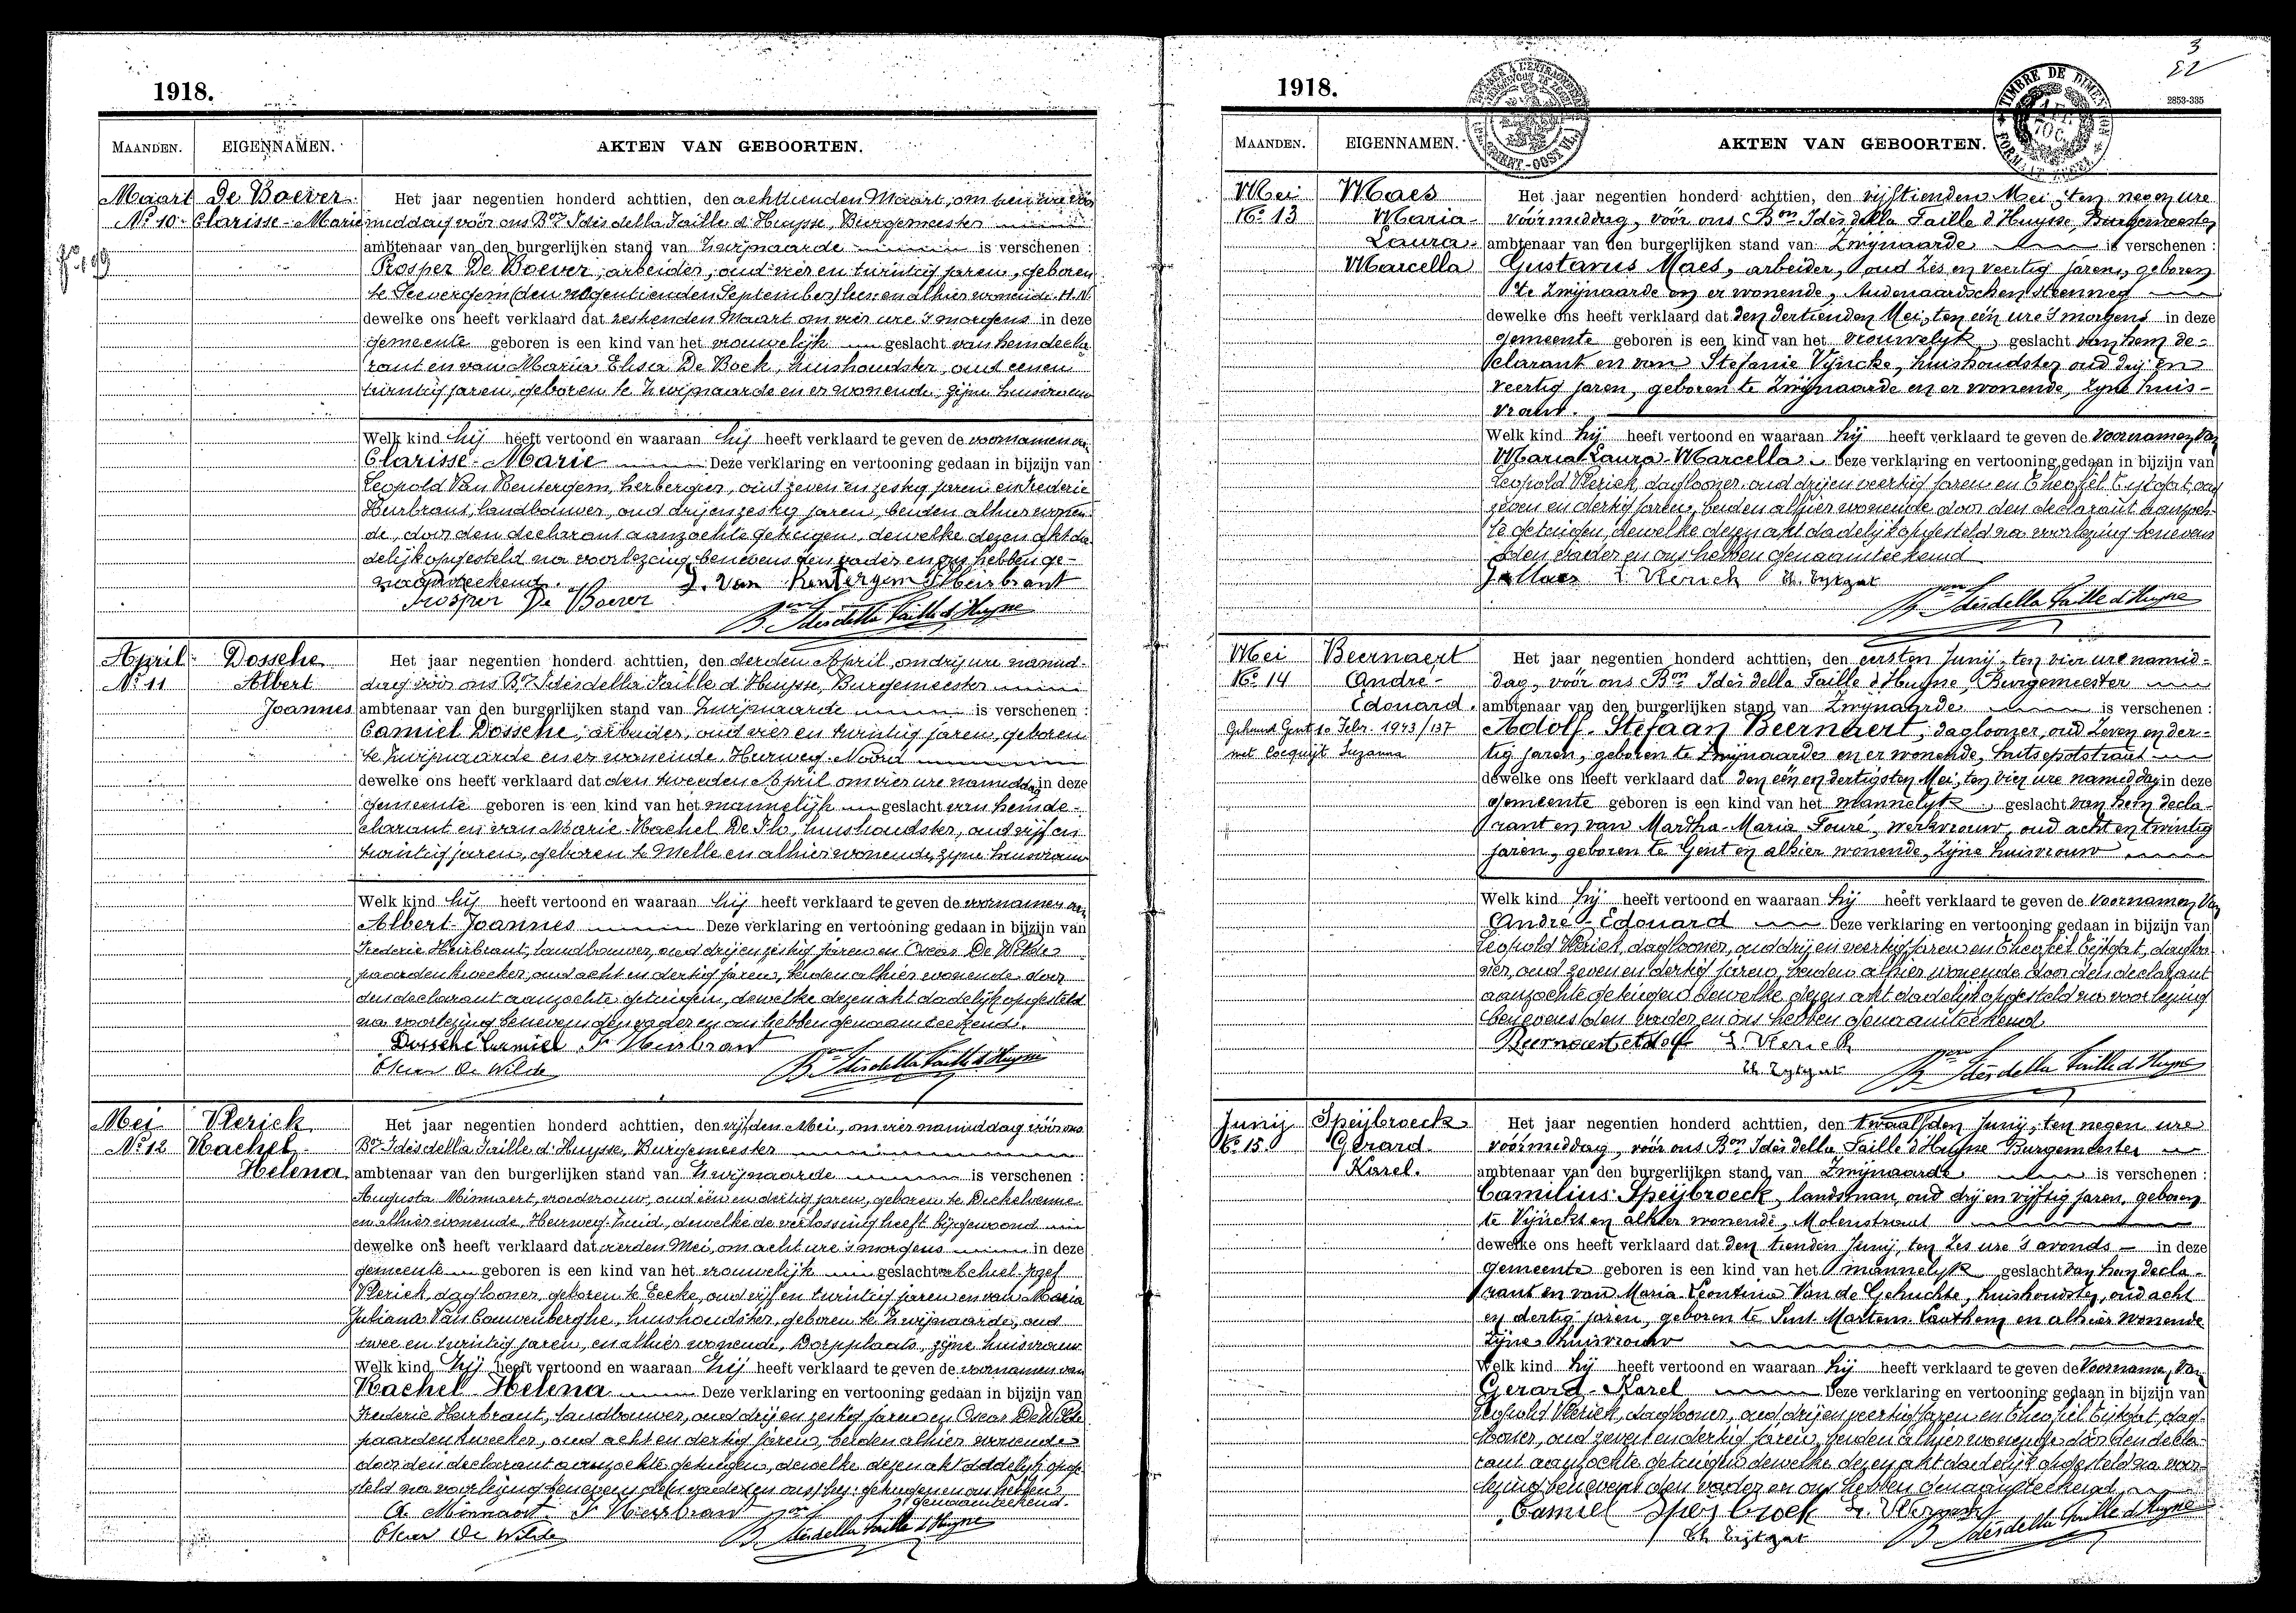 1918.
MAANDEN. EIGENNAMEN. AKTEN VAN GEBOORTEN.
Maart De Baever Het jaar negentien honderd achttien, den achttienden Maart, om tien ure vóór
No 10 Clarisse-Marie middag vóór ons Bon Idès della Faille d'Huysse, Burgemeester
ambtenaar van den burgerlijken stand van Zwijnaarde is verschenen :
Prosper De Baever, arbeider, oud vier en twintig jaren, geboren
te Seevergem (den negentienden September) en alhier wonende
dewelke ons heeft verklaard dat zestienden Maart om vier ure 's morgens in deze
gemeente geboren is een kind van het vrouwelijk geslacht van hem decla-
rant en van Maria Elisa De Bock, huishoudster, oud eenen
twintig jaren, geboren te Zwijnaarde en er wonende, zijne huisvrouw
Welk kind hij heeft vertoond en waaraan hij heeft verklaard te geven de voornamen van
Clarisse-Marie Deze verklaring en vertooning gedaan in bijzijn van
Leopold Van Rentergem, herbergier, oud zeven en zestig jaren en Frederic
Heirbrant, landbouwer, oud drij en zestig jaren, beiden alhier wonen-
de, door den declarant aanzochte getuigen, dewelke dezen akt da-
delijk opgesteld na voorlezing benevens den vader en ons hebben ge-
naamteekend. L. Van Rentergem F Heirbrant
Prosper De Baever
Bon Idès della Faille d'Huysse
April Dossche Het jaar negentien honderd achttien, den derden April, om drij ure namid-
No 11 Albert dag vóór ons Bon Idès della Faille d'Huysse, Burgemeester
Joannes ambtenaar van den burgerlijken stand van Zwijnaarde is verschenen :
Camiel Dossche, arbeider, oud vier en twintig jaren, geboren
te Zwijnaarde en er wonende, Heirweg-Noord
dewelke ons heeft verklaard dat den tweeden April om vier ure namiddag in deze
gemeente geboren is een kind van het mannelijk geslacht van hem de-
clarant en van Marie-Rachel De Flo, huishoudster, oud vijf en
twintig jaren, geboren te Melle en alhier wonende, zijne huisvrouw
Welk kind hij heeft vertoond en waaraan hij heeft verklaard te geven de voornamen van
Albert-Joannes Deze verklaring en vertooning gedaan in bijzijn van
Frederic Heirbrant, landbouwer, oud drij en zestig jaren en Oscar De Wilde
paardenkweeker, oud acht en dertig jaren, beiden alhier wonende door
den declarant aanzochte getuigen, dewelke dezen akt dadelijk opgesteld
na voorlezing benevens den vader en ons hebben genaamteekend.
Dossche Camiel F Heirbrant
Oscar De Wilde Bon Idès della Faille d'Huysse
Mei Vlerick Het jaar negentien honderd achttien, den vijfden Mei, om vier namiddag vóór ons
No 12 Rachel Bon Idès della Faille d'Huysse, Burgemeester
Helena ambtenaar van den burgerlijken stand van Zwijnaarde is verschenen :
Augusta Minnaert, vroedvrouw, oud één en dertig jaren, geboren te Dickelvenne
en alhier wonende, Heirweg-Zuid, dewelke de verlossing heeft bijgewoond
dewelke ons heeft verklaard dat vierden Mei, om acht ure 's morgens in deze
gemeente geboren is een kind van het vrouwelijk geslacht van Achiel-Jozef
Vlerick, daglooner, geboren te Eecke, oud vijf en twintig jaren en van Maria
Juliana Van Cauwenberghe, huishoudster, geboren te Zwijnaarde, oud
twee en twintig jaren, en alhier wonende, Dorpplaats, zijne huisvrouw
Welk kind zij heeft vertoond en waaraan zij heeft verklaard te geven de voornamen van
Rachel Helena Deze verklaring en vertooning gedaan in bijzijn van
Frederic Heirbrant, landbouwer, oud drij en zestig jaren en Oscar De Wilde
paardenkweeker, oud acht en dertig jaren, beiden alhier wonende
door den declarant aanzochte getuigen, dewelke dezen akt dadelijk opge-
steld na voorlezing benevens getuigen en ons hebben
genaamteekend.
A. Minnaert F Heirbrant
Oscar De Wilde Bon Idès della Faille d'Huysse
3
22
1918.
TIMBRE DE DIMENSION
2853-335
MAANDEN. EIGENNAMEN. AKTEN VAN GEBOORTEN.
Mei Maes Het jaar negentien honderd achttien, den vijftienden Mei, ten negen ure
No 13 Maria- vóórmiddag, vóór ons Bon Idès della Faille d'Huysse, Burgemeester
Laura- ambtenaar van den burgerlijken stand van Zwijnaarde is verschenen :
Marcella Gustavus Maes, arbeider, oud zes en veertig jaren, geboren
te Zwijnaarde en er wonende, Audenaardschen steenweg
dewelke ons heeft verklaard dat den dertienden Mei, ten één ure 's morgens in deze
gemeente geboren is een kind van het vrouwelyk geslacht van hem de-
clarant en van Stefanie Vyncke, huishoudster oud drij en
veertig jaren, geboren te Zwijnaarde en er wonende, zyne huis-
vrouw.
Welk kind hij heeft vertoond en waaraan hij heeft verklaard te geven de voornamen van
Maria Laura-Marcella Deze verklaring en vertooning gedaan in bijzijn van
Leopold Vlerick, daglooner, oud drij en veertig jaren en Theofiel Tijtgat, oud
zeven en dertig jaren, beiden alhier wonende door den declarant aanzoch-
te getuigen, dewelke dezen akt dadelijk opgesteld na voorlezing benevens
den vader en ons hebben genaamteekend
G. Maes L. Vlerick Th. Tytgat
Bon Idès della Faille d'Huysse
Mei Beernaert Het jaar negentien honderd achttien, den eersten Junij, ten vier ure namid-
No 14 André- dag, vóór ons Bon Idès della Faille d'Huysse, Burgemeester
Edouard. ambtenaar van den burgerlijken stand van Zwijnaarde is verschenen :
Gehuwd Gent 10 Febr. 1943/137 Adolf-Stefaan Beernaert, daglooner, oud zeven en der-
met Cocquijt Suzanna tig jaren, geboren te Zwijnaarde en er wonende, Hutsepotstraat
dewelke ons heeft verklaard dat den één en dertigsten Mei, ten vier ure namiddag in deze
gemeente geboren is een kind van het mannelyk geslacht van hem decla-
rant en van Martha-Maria Fouré, werkvrouw, oud acht en twintig
jaren, geboren te Gent en alhier wonende, zijne huisvrouw
Welk kind hij heeft vertoond en waaraan hij heeft verklaard te geven de voornamen van
André-Edouard Deze verklaring en vertooning gedaan in bijzijn van
Leopold Vlerick, daglooner, oud drij en veertig jaren en Theofiel Tijtgat, dagloo-
ner, oud zeven en dertig jaren, beiden alhier wonende door den declarant
aanzochte getuigen dewelke dezen akt dadelijk opgesteld na voorlezing
benevens den vader en ons hebben genaamteekend
Beernaert Adolf L. Vlerick
Th. Tytgat Bon Idès della Faille d'Huysse
Junij Speijbroeck Het jaar negentien honderd achttien, den twaalfden Junij, ten negen ure
No 15. Gérard- vóórmiddag, vóór ons Bon Idès della Faille d'Huysse Burgemeester
Karel. ambtenaar van den burgerlijken stand van Zwijnaarde is verschenen :
Camilius Speijbroeck, landsman, oud drij en vijftig jaren, geboren
te Vijnckt en alhier wonende, Molenstraat
dewelke ons heeft verklaard dat den tienden Junij, ten zes ure 's avonds in deze
gemeente geboren is een kind van het mannelyk geslacht van hem decla-
rant en van Maria-Leontina Van de Gehuchte, huishoudster, oud acht
en dertig jaren, geboren te Sint Martens Lauthem en alhier wonende
zijne huisvrouw
Welk kind hij heeft vertoond en waaraan hij heeft verklaard te geven de voornamen van
Gerard-Karel Deze verklaring en vertooning gedaan in bijzijn van
Leopold Vlerick, daglooner, oud drij en veertig jaren en Theofiel Tijtgat, dag-
looner, oud zeven en dertig jaren, beiden alhier wonende door den decla-
rant aanzochte getuigen dewelke dezen akt dadelijk opgesteld na voor-
lezing benevens den vader en ons hebben genaamteekend
Camiel Speijbroek L. Vlerick
Th. Tijtgat Bon Idès della Faille d'Huysse